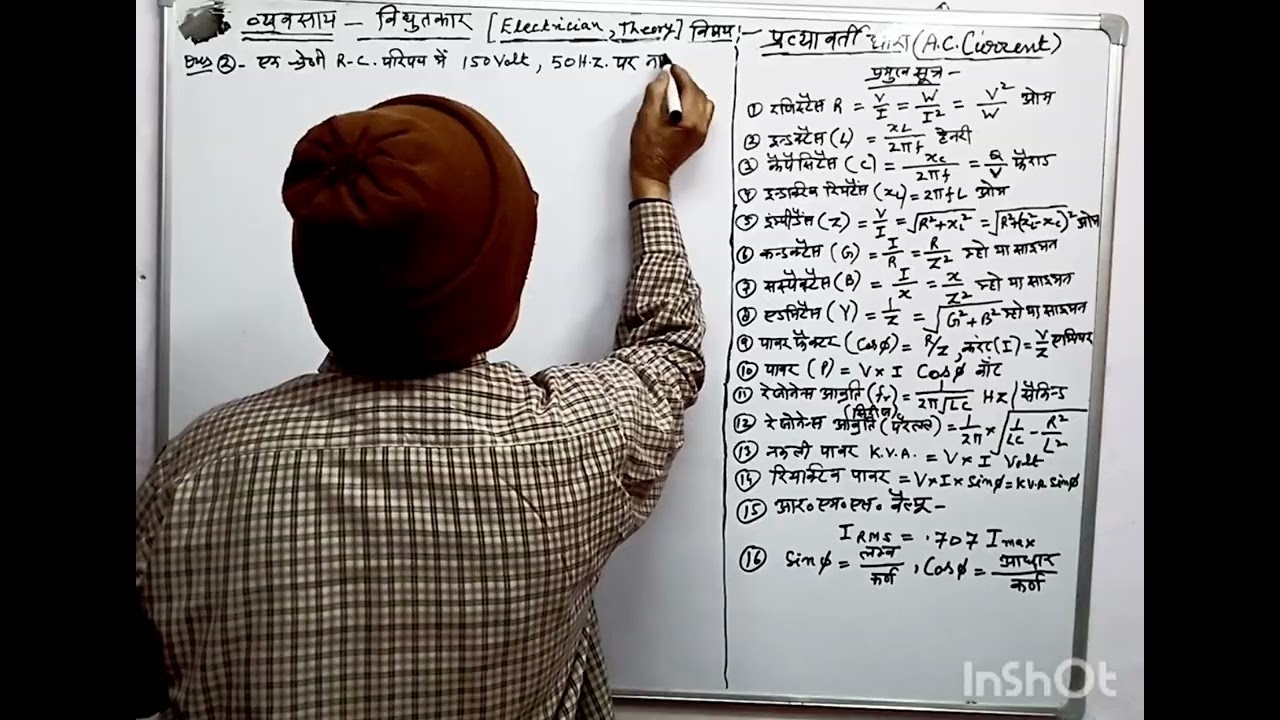 व्यवसाय - विधुतकार [Electrician, Theory] विषय:-
प्रत्यावर्ती धारा (A.C. Current)
Ques ② - एक श्रेणी R-C. परिपथ में 150 Volt, 50 H.Z. पर
प्रमुख सूत्र -
① रजिस्टैंस R = V/I = W/I² = V²/W ओम
② इन्डक्टैंस (L) = XL/2πf हेनरी
③ कैपेसिटैंस (C) = Xc/2πf = Q/V फैराड
④ इन्डक्टिव रियेक्टैंस (XL) = 2πfL ओम
⑤ इम्पीडैंस (Z) = V/I = √R²+XL² = √R²+(XL-Xc)² ओम
⑥ कन्डक्टैंस (G) = I/R = R/Z² म्हो या साइमन
⑦ सस्पैक्टैंस (B) = I/X = X/Z² म्हो या साइमन
⑧ एडमिटैंस (Y) = 1/Z = √G²+B² म्हो या साइमन
⑨ पावर फैक्टर (Cosϕ) = R/Z, करंट (I) = V/Z एम्पियर
⑩ पावर (P) = V×I Cosϕ वॉट
⑪ रेजोनेन्स आवृति (fr) = 1/2π√LC HZ/सैकिन्ड
⑫ रेजोनेन्स आवृति (पैरलल) = 1/2π × √1/LC - R²/L²
⑬ नकली पावर K.V.A. = V×I Volt
⑭ रियक्टिव पावर = V×I×Sinϕ = K.V.A Sinϕ
⑮ आर०एम०एस० वैल्यू -
I RMS = .707 I max
⑯ Sinϕ = लम्ब/कर्ण, Cosϕ = आधार/कर्ण
InShOt